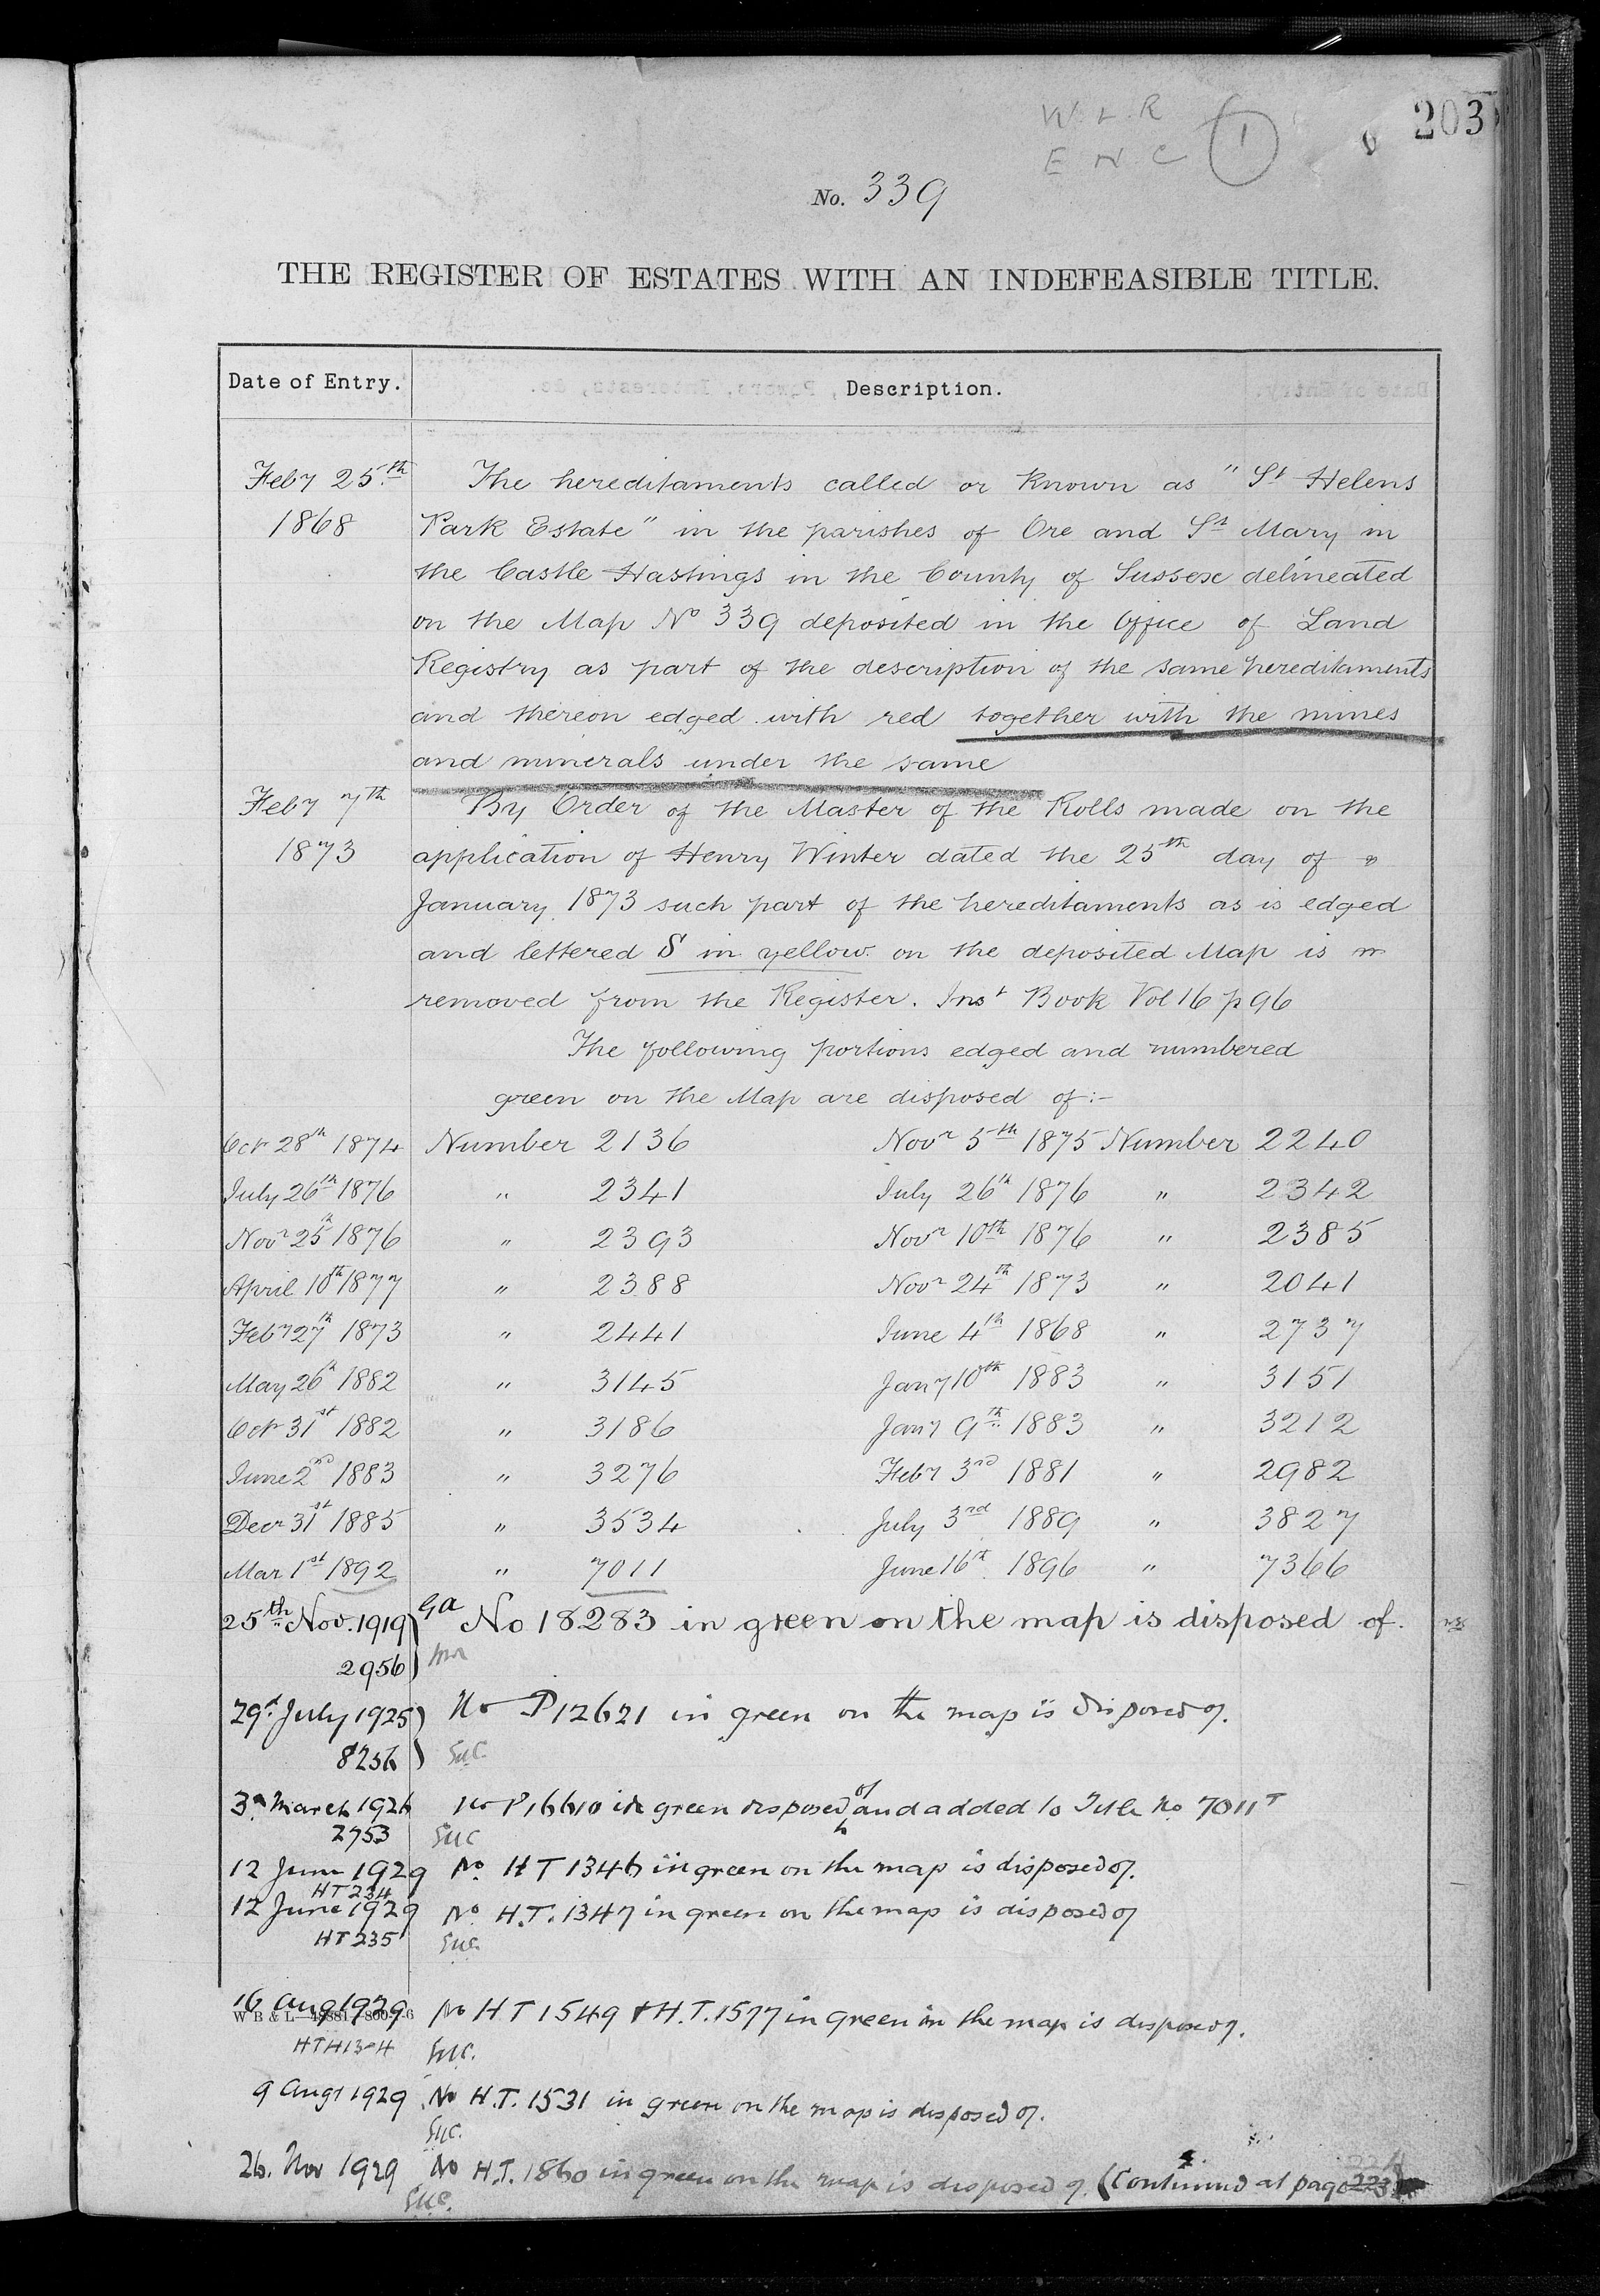 W. L. R
E N C
1
203
No. 339
THE REGISTER OF ESTATES WITH AN INDEFEASIBLE TITLE.
Date of Entry.
Description.
Feby 25th 1868
The hereditaments called or known as "St Helens
Park Estate" in the parishes of Ore and St Mary in
the Castle Hastings in the County of Sussex delineated
on the Map No 339 deposited in the Office of Land
Registry as part of the description of the same hereditaments
and thereon edged with red together with the mines
and minerals under the same
Feby 7th 1873
By Order of the Master of the Rolls made on the
application of Henry Winter dated the 25th day of
January 1873 such part of the hereditaments as is edged
and lettered S in yellow on the deposited Map is
removed from the Register. Inst Book Vol 16 p 96
The following portions edged and numbered
green on the Map are disposed of:-
Oct 28th 1874 Number 2136 Novr 5th 1875 Number 2240
July 26th 1876 " 2341 July 26th 1876 " 2342
Novr 25th 1876 " 2393 Novr 10th 1876 " 2385
April 10th 1877 " 2388 Novr 24th 1873 " 2041
Feby 27th 1873 " 2441 June 4th 1868 " 2737
May 26th 1882 " 3145 Jany 10th 1883 " 3151
Oct 31st 1882 " 3186 Jany 9th 1883 " 3212
June 2nd 1883 " 3276 Feby 3rd 1881 " 2982
Decr 31st 1885 " 3534 July 3rd 1889 " 3827
Mar 1st 1892 " 7011 June 16th 1896 " 7366
25th Nov. 1919 Ga No 18283 in green on the map is disposed of.
2956
29th July 1925 No P12621 in green on the map is disposed of.
8256
3rd March 1926 No P16610 in green disposed of and added to Title No 7011T
2753
12 June 1929 No. HT 1346 in green on the map is disposed of.
HT 234
12 June 1929 No. H.T. 1347 in green on the map is disposed of
HT 235
16 Aug 1929 No HT 1549 & H.T. 1577 in green on the map is disposed of.
W B & L
9 Augt 1929 No H.T. 1531 in green on the map is disposed of.
26. Nov 1929 No H.T. 1860 in green on the map is disposed of. (Continued at page 223